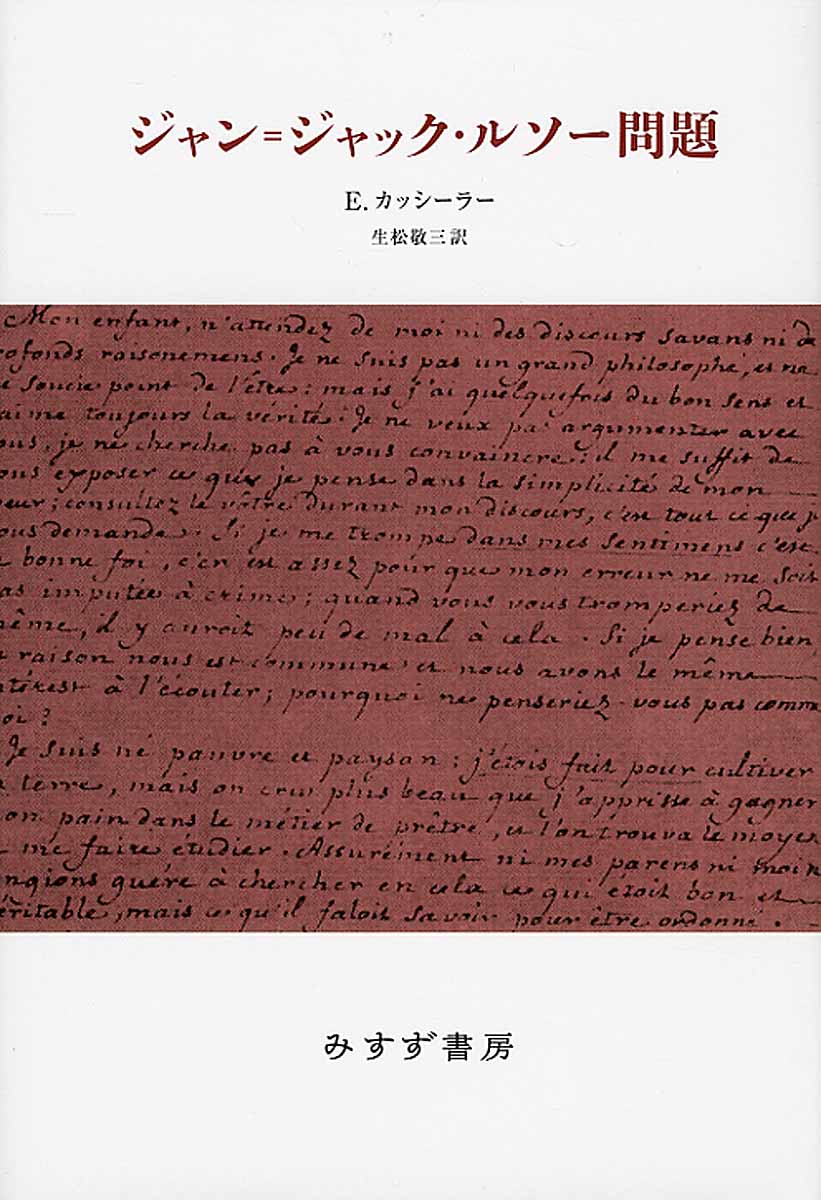 ジャン=ジャック・ルソー問題
E. カッシーラー
生松敬三訳
Mon enfant, n'attendez de moi ni des discours savans ni de
rofonds raisonemens. Je ne suis pas un grand philosophe, et ne
e soucie point de l'être: mais j'ai quelquefois du bon sens et
aime toujours la vérité. Je ne veux pas argumenter avec
ous, je ne cherche pas à vous convaincre; il me suffit de
ous exposer ce que je pense dans la simplicité de mon
oeur; consultez le vôtre durant mon discours, c'est tout ce que j
ous demande. Si je me trompe dans mes sentimens c'est
bonne foi, c'en est assez pour que mon erreur ne me soit
as imputée à crime; quand vous vous tromperiez de
ême, il y auroit peu de mal à cela. Si je pense bien,
raison nous est commune et nous avons le même
ntérest à l'écouter; pourquoi ne penseriez-vous pas comme
oi?
Je suis né pauvre et paysan: j'étois fait pour cultiver
terre, mais on crut plus beau que j'apprisse à gagner
on pain dans le métier de prêtre, et l'on trouva le moyen
me faire étudier. Assurément ni mes parens ni moi n
ngions guére à chercher en cela ce qui étoit bon et
éritable, mais ce qu'il faloit savoir pour être ordonné.
みすず書房